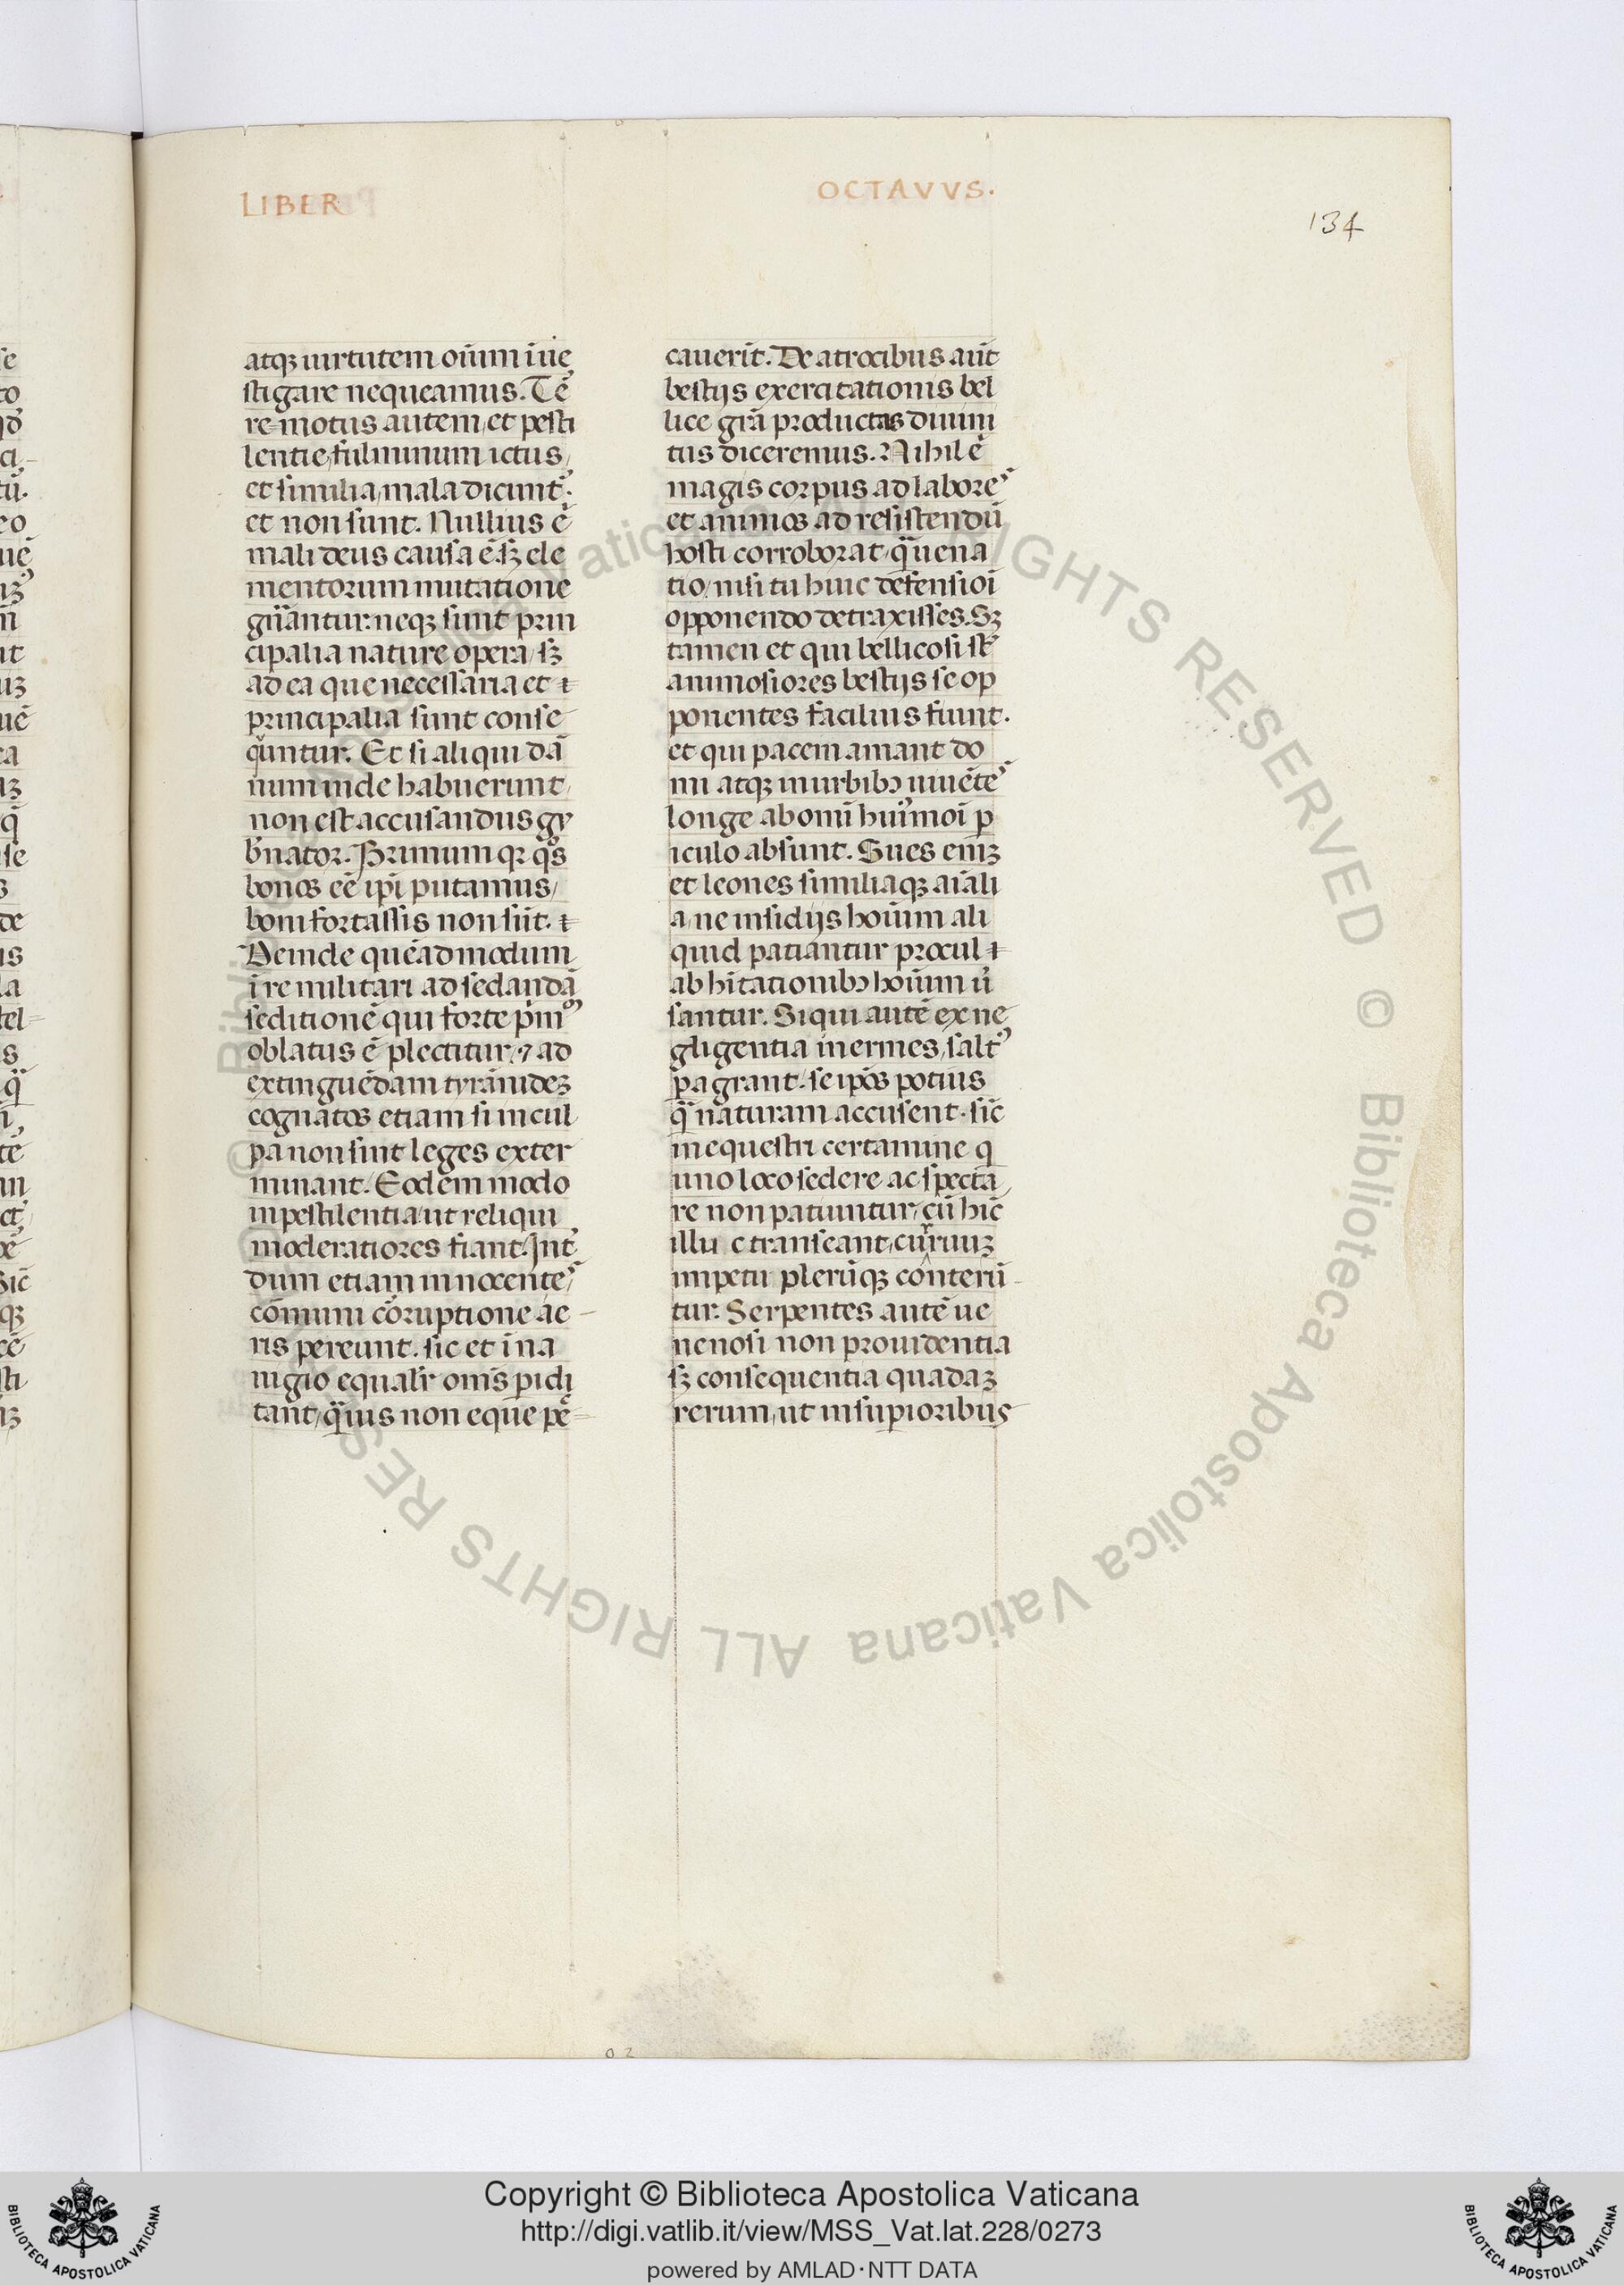 LIBER
OCTAVVS.
134
atqꝫ uirtutem oīum īue
stigare nequeamus. Tē
re motus autem et pesti
lentie, fulminum ictus,
et similia, mala dicunt᷑.
et non sunt. Nullius ē
mali deus causa ē. sꝫ ele
mentorum mutatione
gn̄antur. neqꝫ sunt prin
cipalia nature opera, sꝫ
ad ea que necessaria et
principalia sunt conse
quntur. Et si aliqui dā
num inde habuerunt,
non est accusandus gu
b̄nator. Primum qꝛ qͦs
bonos eē ipī putamus,
boni fortassis non sūt.
Deinde quēadmodum
ī re militari ad sedandā
seditionē qui forte pͥmꝰ
oblatus ē plectitur, ⁊ ad
extinguēdam tyrānideꝫ
cognatos etiam si in cul
pa non sint leges exter
minant. Eodem modo
in pestilentia, ut reliqui
moderatiores fiant. Int᷑
dum etiam innocentes
cōmuni coruptione ae
ris pereunt. sic et ī na
uigio equalr̄ oīns pidi
tant, qͣuis non eque pē
cauerit. De atrocibus aūt
bestijs exercitationis bel
lice grā productas diuini
tus diceremus. Nihil ē
magis corpus ad labores
et animos ad resistendū
hosti corroborat, qͣ uena
tio, nisi tu huic defensioī
opponendo detraxisses. Sꝫ
tamen et qui bellicosi st̄
animosiores bestijs se op
ponentes facilius fiunt.
et qui pacem amant do
mi atqꝫ in urbibꝫ uiuētes
longe ab omī huiꝰmoī ꝑ
iculo absunt. Sues eniꝫ
et leones similiaqꝫ aīali
a, ne insidijs hoīum ali
quid patiantur procul
ab hītationibꝫ hoīum ū
santur. Si qui autē ex ne
gligentia inermes, salt᷑
ꝑagrant. se ipōs potius
qͣ naturam accusent. sic̄
in equestri certamine q
uno loco sedere ac specta
re non patiuntur, cū hic̄
illuc transeant, curruuꝫ
impetu plerūqꝫ conterū
tur. Serpentes autē ue
nenosi non prouidentia
sꝫ consequentia quadaꝫ
rerum, ut in suꝑioribus
Copyright © Biblioteca Apostolica Vaticana
http://digi.vatlib.it/view/MSS_Vat.lat.228/0273
powered by AMLAD·NTT DATA